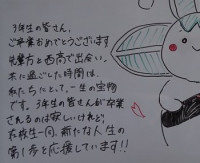 3年生の皆さん、
ご卒業おめでとうございます
先輩方と西高で出会い、
共に過ごした時間は、
私たちにとって、一生の宝物
です。3年生の皆さんが卒業
されるのは寂しいけれど、
在校生一同、新たな人生の
第1歩を応援しています!!